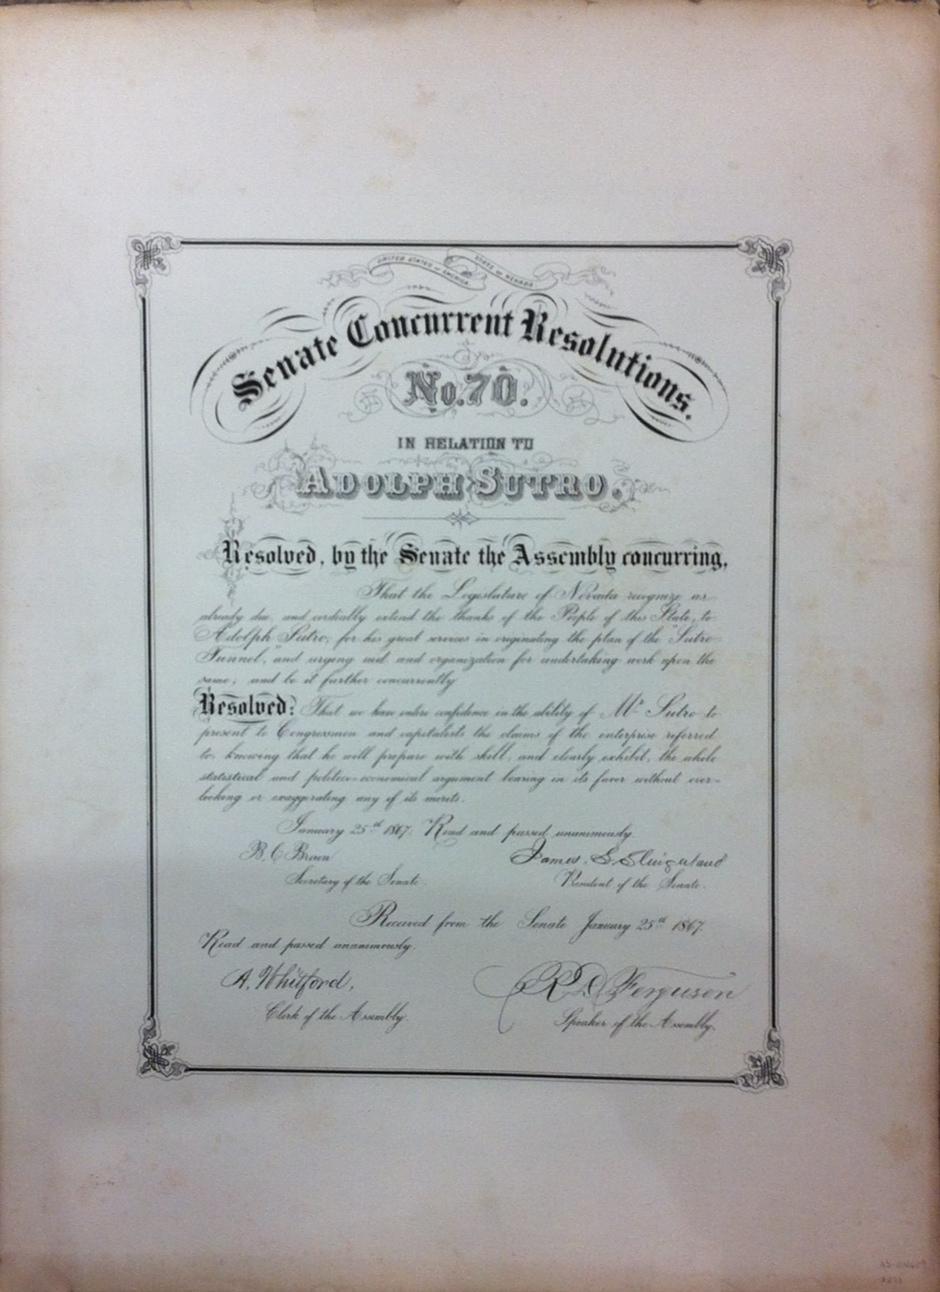 UNITED STATES OF AMERICA. STATE OF NEVADA
Senate Concurrent Resolutions.
No. 70.
IN RELATION TO
ADOLPH SUTRO.
Resolved, by the Senate the Assembly concurring,
That the Legislature of Nevada recognize as
already due, and cordially extend the thanks of the People of this State, to
Adolph Sutro, for his great services in originating the plan of the "Sutro
Tunnel," and urging aid and organization for undertaking work upon the
same; and be it further concurrently
Resolved: That we have entire confidence in the ability of Mr Sutro to
present to Congressmen and capitalists the claims of the enterprise referred
to, knowing that he will prepare with skill, and clearly exhibit, the whole
statistical and politico-economical argument bearing in its favor without over-
looking or exaggerating any of its merits.
January 25th 1867. Read and passed unanimously.
B. C. Brown James. S. Slingerland
Secretary of the Senate. President of the Senate.
Received from the Senate January 25th 1867.
Read and passed unanimously.
A. Whitford, R. D. Ferguson
Clerk of the Assembly. Speaker of the Assembly.